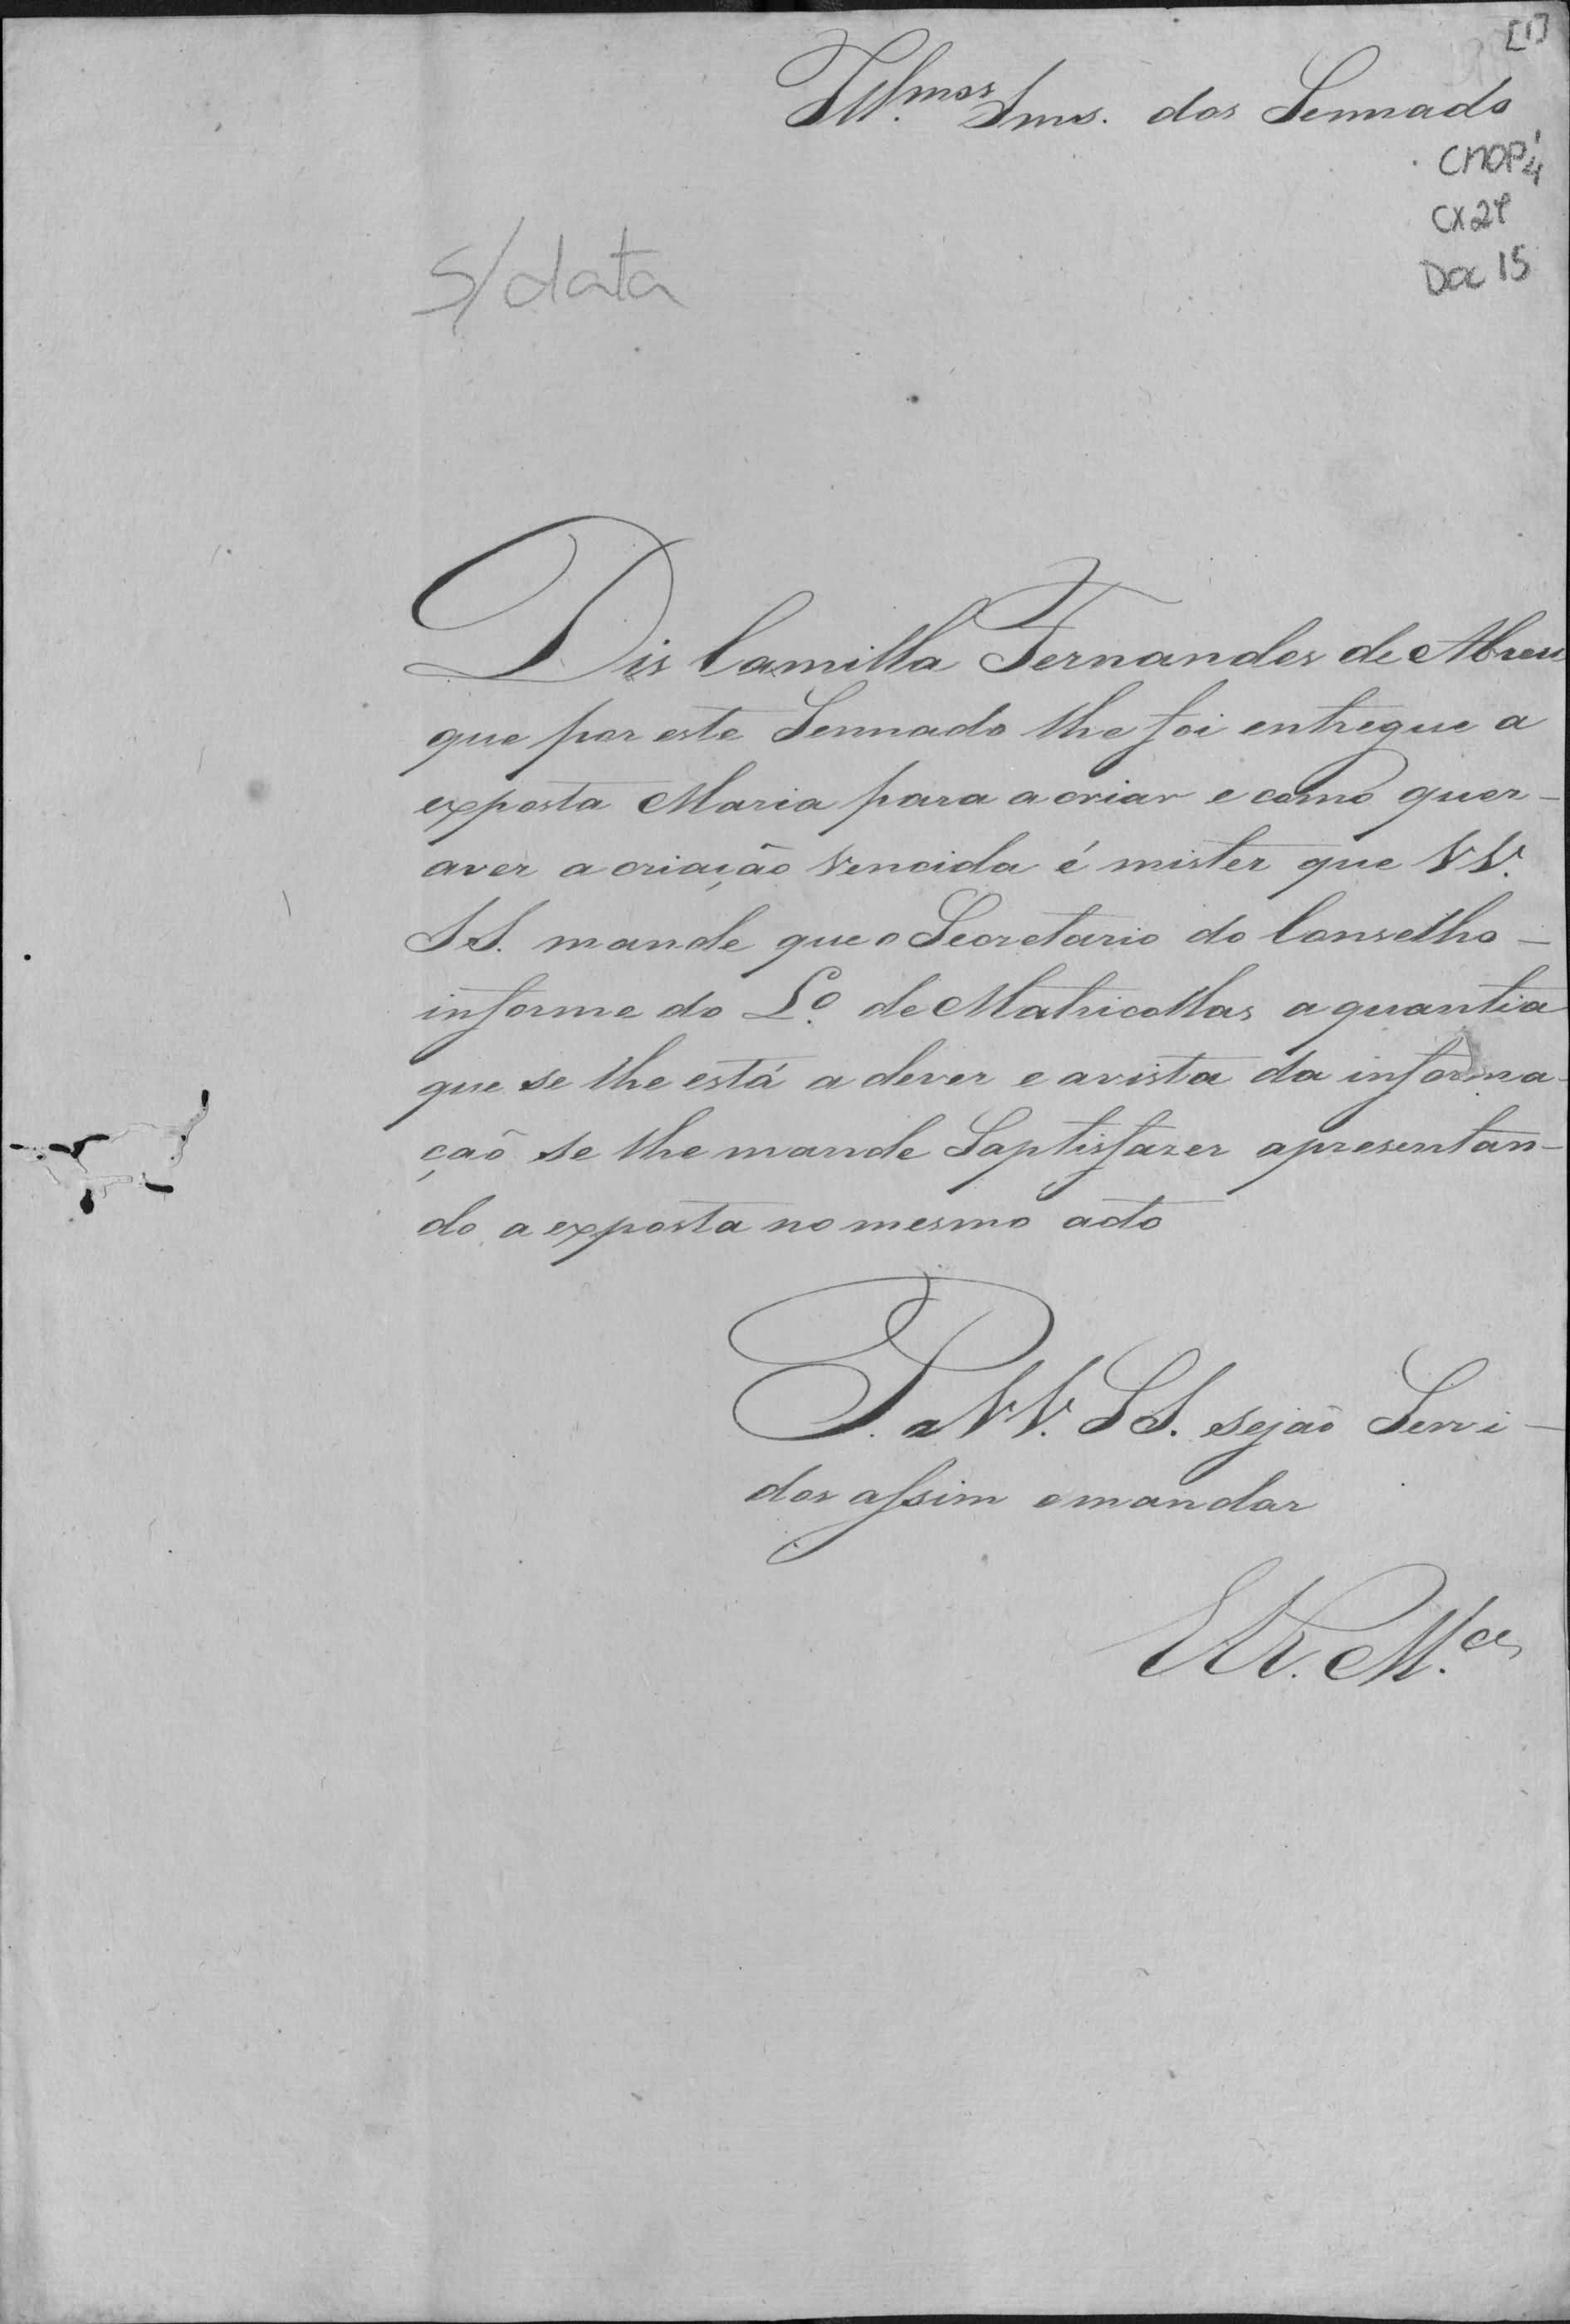 [1]
Ill.mos Snrs. dos Sennado
CMOP
CX 29
DOC 15
S/data
Dis Camilla Fernandes de Abreu
que por este Sennado lhe foi entregue a
exposta Maria para a criar e como quer -
aver a criação vencida é mister que VV.
SS. mande que o Secretario do Conselho -
informe do L.o de Matricollas a quantia
que se lhe está a dever e avista da informa-
çaõ se lhe mande Saptisfazer apresentan-
do a exposta no mesmo acto
P. a VV. SS. sejaõ Servi-
dos assim o mandar
E R. M.ce